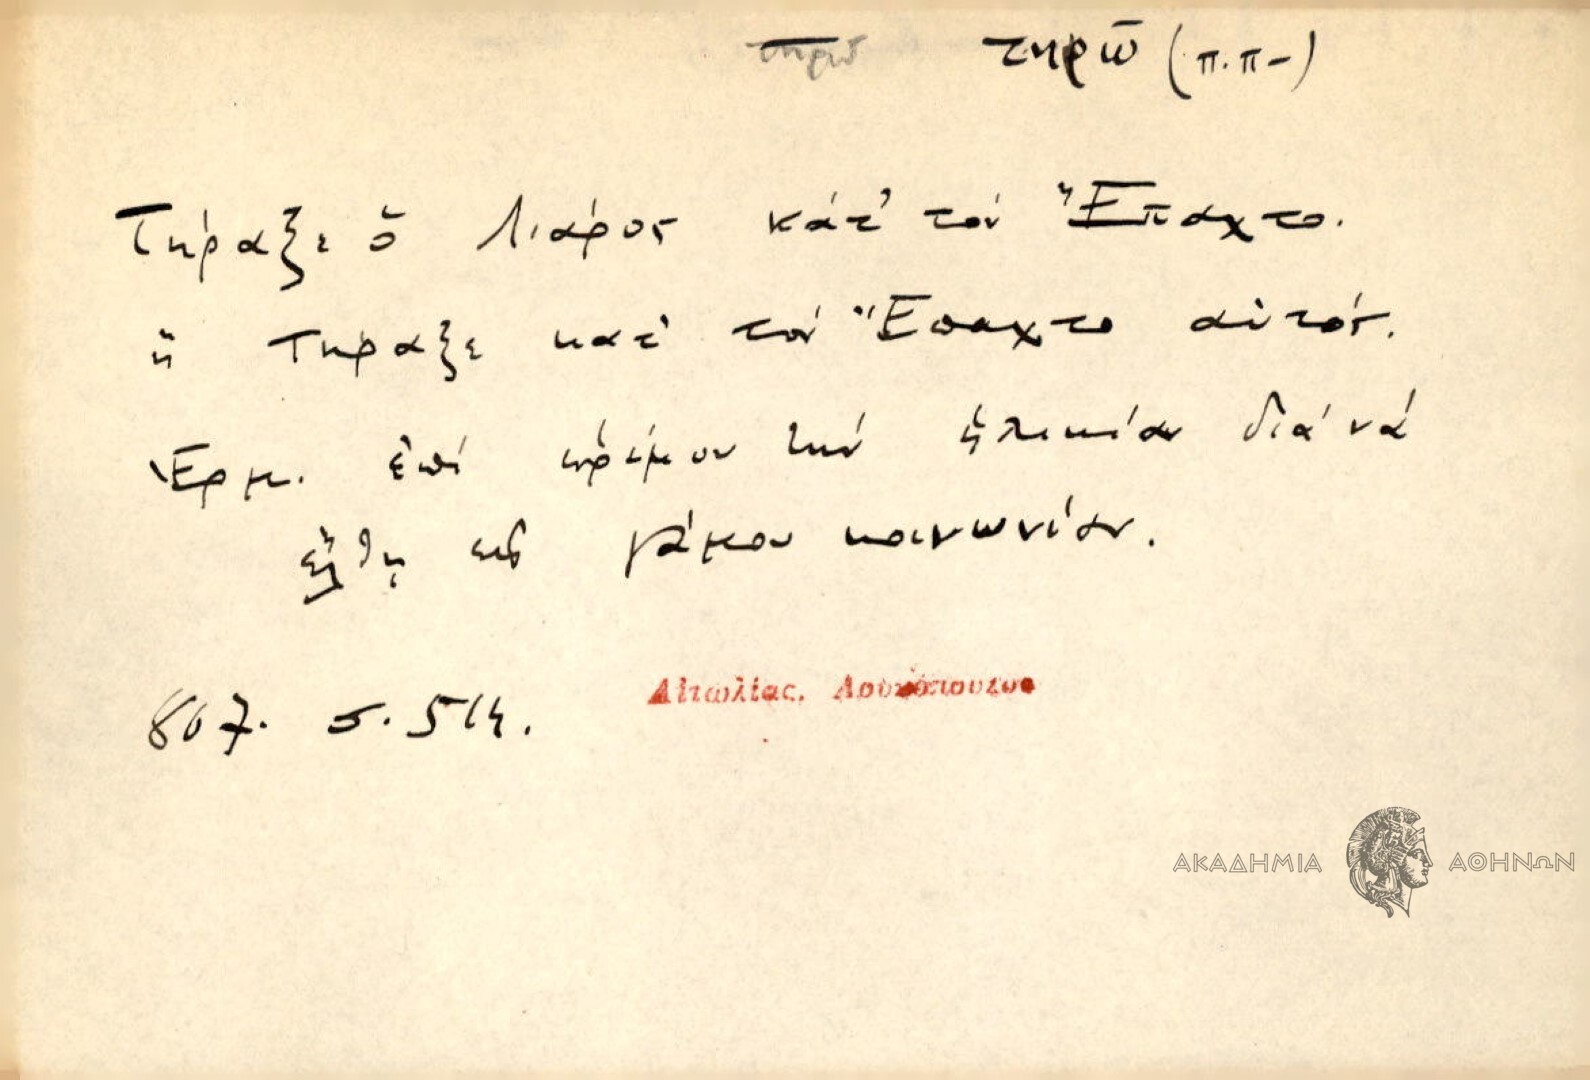 τηρῶ τηρῶ (π.π-)
Τήραξε ὁ Λιάρος κάτ' τὸν Ἔπαχτο.
ἤ τήραξε κατ' τὸν Ἔπαχτο αὐτός.
Ἑρμ. ἐπὶ ὡρίμου τὴν ἡλικίαν διὰ νὰ
ἔλθῃ εἰς γάμου κοινωνίαν.
Αἰτωλίας, Λουκόπουλος
807. σ. 514.
ΑΚΑΔΗΜΙΑ ΑΘΗΝΩΝ